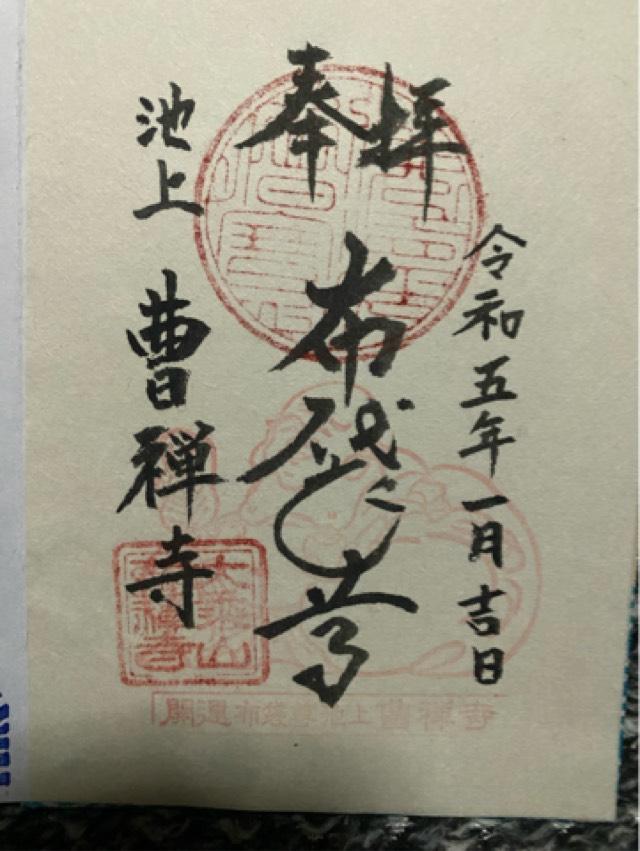 奉拝
令和五年一月吉日
布袋尊
池上 曹禅寺
開運布袋尊池上曹禅寺